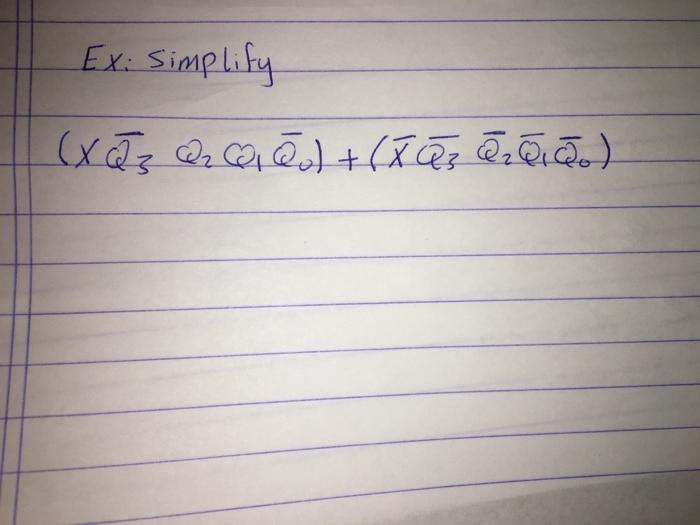 Ex: Simplify
(X Q̅₃ Q₂ Q₁ Q̅₀) + (X̅ Q̅₃ Q̅₂ Q̅₁ Q̅₀)